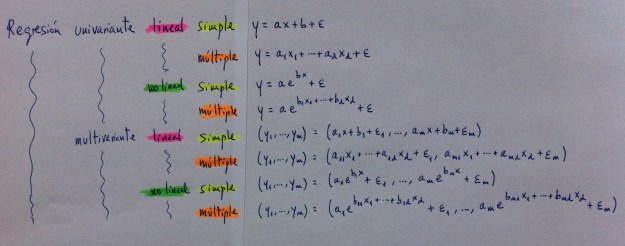 Regresión univariante lineal simple y = ax + b + ε
múltiple y = a₁x₁ + ... + a_d x_d + ε
no lineal simple y = a e^{bx} + ε
múltiple y = a e^{b₁x₁ + ... + b_d x_d} + ε
multivariante lineal simple (y₁, ..., yₘ) = (a₁x + b₁ + ε₁, ..., aₘx + bₘ + εₘ)
múltiple (y₁, ..., yₘ) = (a₁₁x₁ + ... + a₁_d x_d + ε₁, aₘ₁x₁ + ... + aₘ_d x_d + εₘ)
no lineal simple (y₁, ..., yₘ) = (a₁e^{b₁x} + ε₁, ..., aₘe^{bₘx} + εₘ)
múltiple (y₁, ..., yₘ) = (a₁e^{b₁₁x₁ + ... + b₁_d x_d} + ε₁, ..., aₘe^{bₘ₁x₁ + ... + bₘ_d x_d} + εₘ)